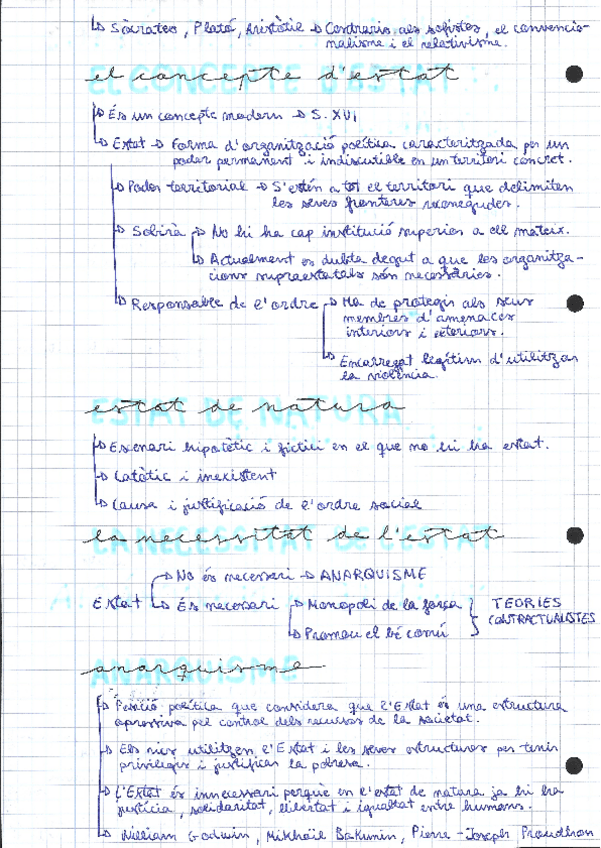 ↳ Sòcrates, Plató, Aristòtil → Contraris als sofistes, el convencio-
nalisme i el relativisme.
el concepte d'estat
→ És un concepte modern → S. XVI
→ Estat → Forma d'organització política caracteritzada per un
poder permanent i indiscutible en un territori concret.
→ Poder territorial → S'estén a tot el territori que delimiten
les seves fronteres reconegudes.
→ Sobirà → No hi ha cap institució superior a ell mateix.
→ Actualment es dubta degut a que les organitza-
cions supraestatals són necessàries.
→ Responsable de l'ordre → Ha de protegir als seus
membres d'amenaces
interiors i exteriors.
→ Encarregat legítim d'utilitzar
la violència.
estat de natura
→ Escenari hipotètic i fictici en el que no hi ha estat.
→ Caòtic i inexistent
→ Causa i justificació de l'ordre social
la necessitat de l'estat
→ No és necessari → ANARQUISME
Estat → És necessari → Monopoli de la força } TEORIES
→ Promou el bé comú CONTRACTUALISTES
anarquisme
→ Posició política que considera que l'Estat és una estructura
opressiva pel control dels recursos de la societat.
→ Els rics utilitzen l'Estat i les seves estructures per tenir
privilegis i justificar la pobresa.
→ L'Estat és innecessari perquè en l'estat de natura ja hi ha
justícia, solidaritat, llibertat i igualtat entre humans.
→ William Godwin, Mikhaïl Bakunin, Pierre-Joseph Proudhon